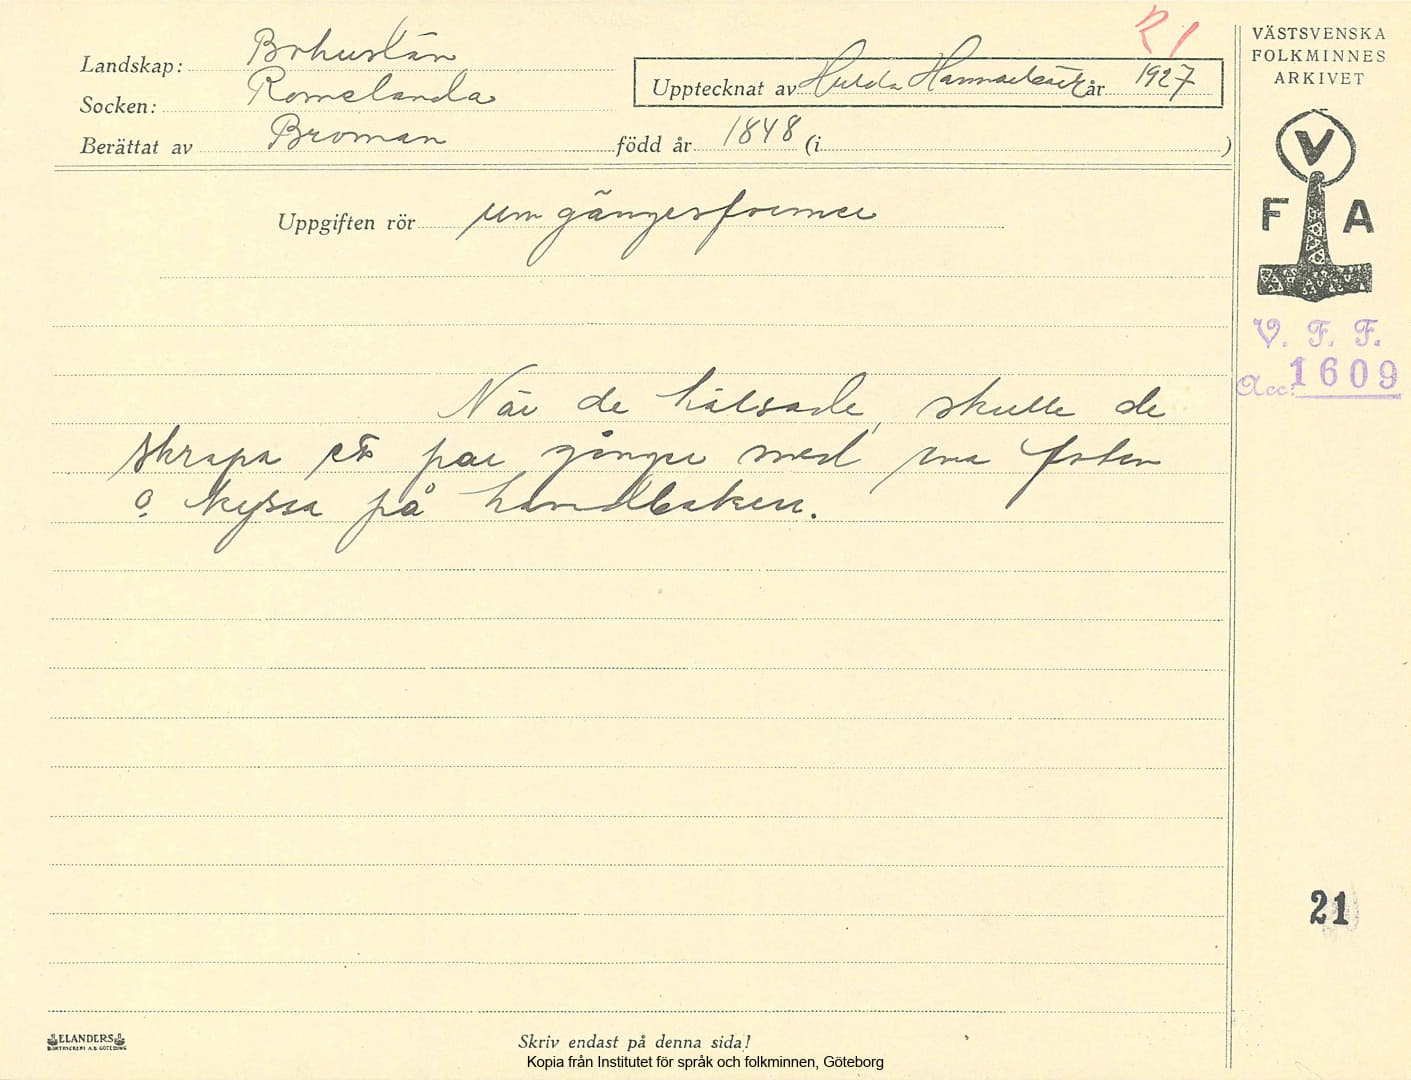 R 1
Landskap: Bohuslän
Socken: Romelanda
Upptecknat av Hulda Hammarbäck år 1927
Berättat av Broman född år 1848 (i )
Uppgiften rör umgängesformer
När de hälsade, skulle de
skrapa ett par gånger med ena foten
o. kyssa på handbaken.
VÄSTSVENSKA
FOLKMINNES
ARKIVET
V
F A
V. F. F.
Acc: 1609
21
ELANDERS
BOKTRYCKERI A.B. GÖTEBORG
Skriv endast på denna sida!
Kopia från Institutet för språk och folkminnen, Göteborg